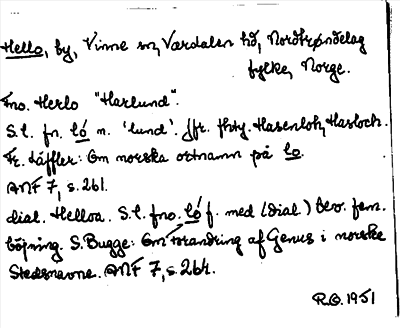 Hello, by, Vinne sn, Værdalen hd, Nordtrøndelag
fylke, Norge.
Fno. Herlo "Harlund".
S.l. fn. ló n. 'lund'. Jfr. fhty. Hasenloh, Hasloch.
Fr. Läffler: Om norska ortnamn på lo.
ANF 7, s. 261.
dial. Helloa. S.l. fno. ló f. med (dial.) bev. fem.
böjning. S. Bugge: Om Forandring af Genus i norske
Stedsnavne. ANF 7, s. 264.
R.O. 1951